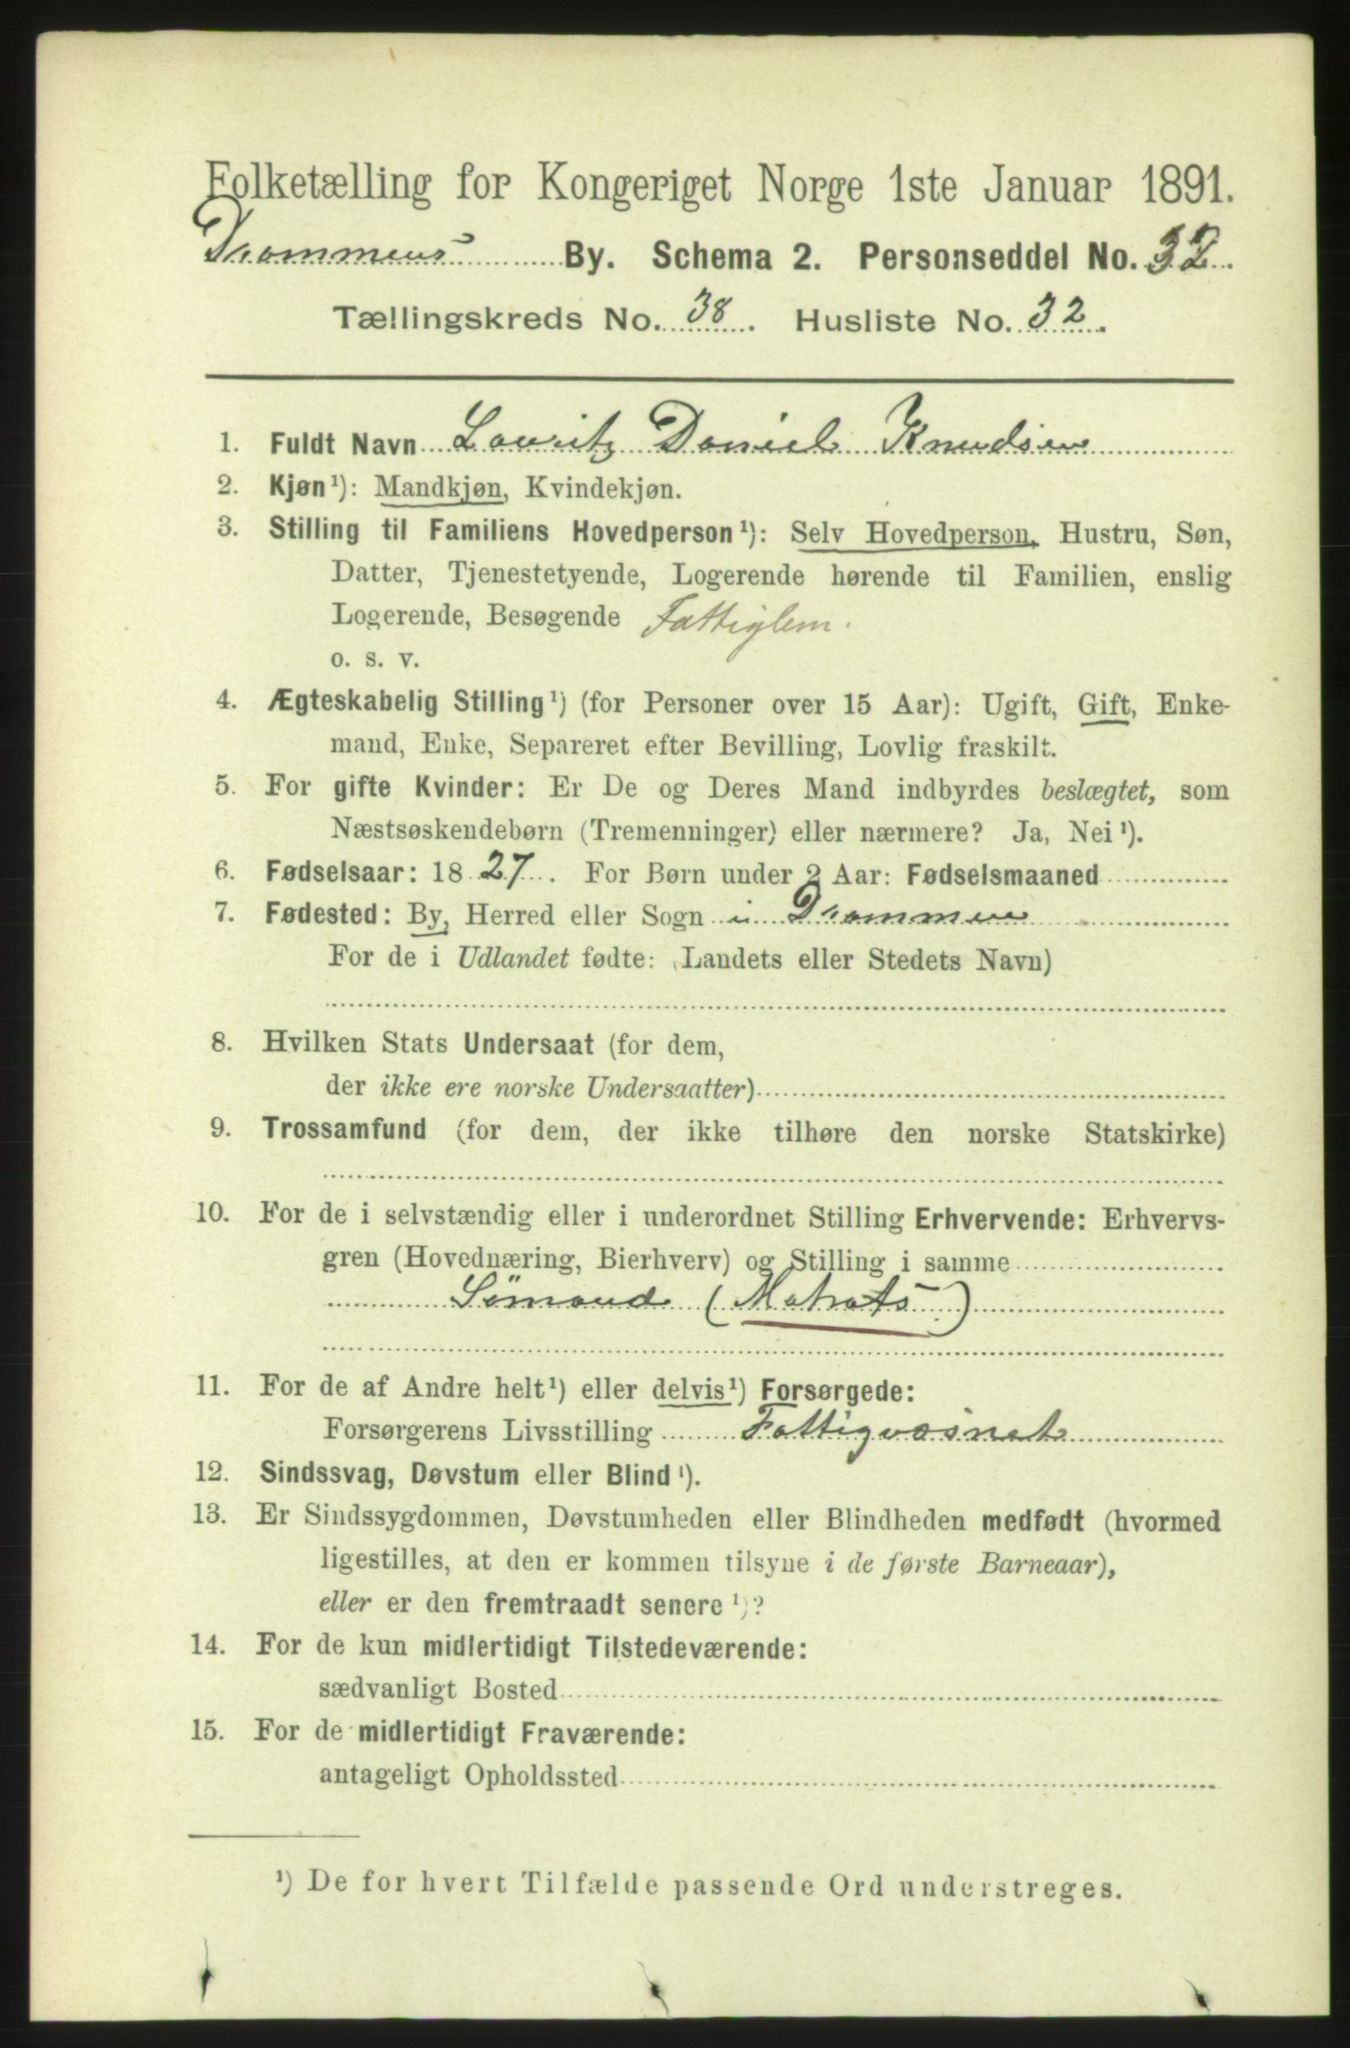 Folketælling for Kongeriget Norge 1ste Januar 1891.
Drammens By. Schema 2. Personseddel No. 32.
Tællingskreds No. 38. Husliste No. 32.
1. Fuldt Navn Lauritz Daniel Knudsen
2. Kjøn¹): Mandkjøn, Kvindekjøn.
3. Stilling til Familiens Hovedperson¹): Selv Hovedperson, Hustru, Søn,
Datter, Tjenestetyende, Logerende hørende til Familien, enslig
Logerende, Besøgende Fattiglem.
o. s. v.
4. Ægteskabelig Stilling¹) (for Personer over 15 Aar): Ugift, Gift, Enke-
mand, Enke, Separeret efter Bevilling, Lovlig fraskilt.
5. For gifte Kvinder: Er De og Deres Mand indbyrdes beslægtet, som
Næstsøskendebørn (Tremenninger) eller nærmere? Ja, Nei¹).
6. Fødselsaar: 1827. For Børn under 2 Aar: Fødselsmaaned
7. Fødested: By, Herred eller Sogn i Drammen
For de i Udlandet fødte: Landets eller Stedets Navn)
8. Hvilken Stats Undersaat (for dem,
der ikke ere norske Undersaatter)
9. Trossamfund (for dem, der ikke tilhøre den norske Statskirke)
10. For de i selvstændig eller i underordnet Stilling Erhvervende: Erhvervs-
gren (Hovednæring, Bierhverv) og Stilling i samme
Sömand (Matrots)
11. For de af Andre helt¹) eller delvis¹) Forsørgede:
Forsørgerens Livsstilling Fattigvæsnet
12. Sindssvag, Døvstum eller Blind¹).
13. Er Sindssygdommen, Døvstumheden eller Blindheden medfødt (hvormed
ligestilles, at den er kommen tilsyne i de første Barneaar),
eller er den fremtraadt senere¹)?
14. For de kun midlertidigt Tilstedeværende:
sædvanligt Bosted
15. For de midlertidigt Fraværende:
antageligt Opholdssted
¹) De for hvert Tilfælde passende Ord understreges.